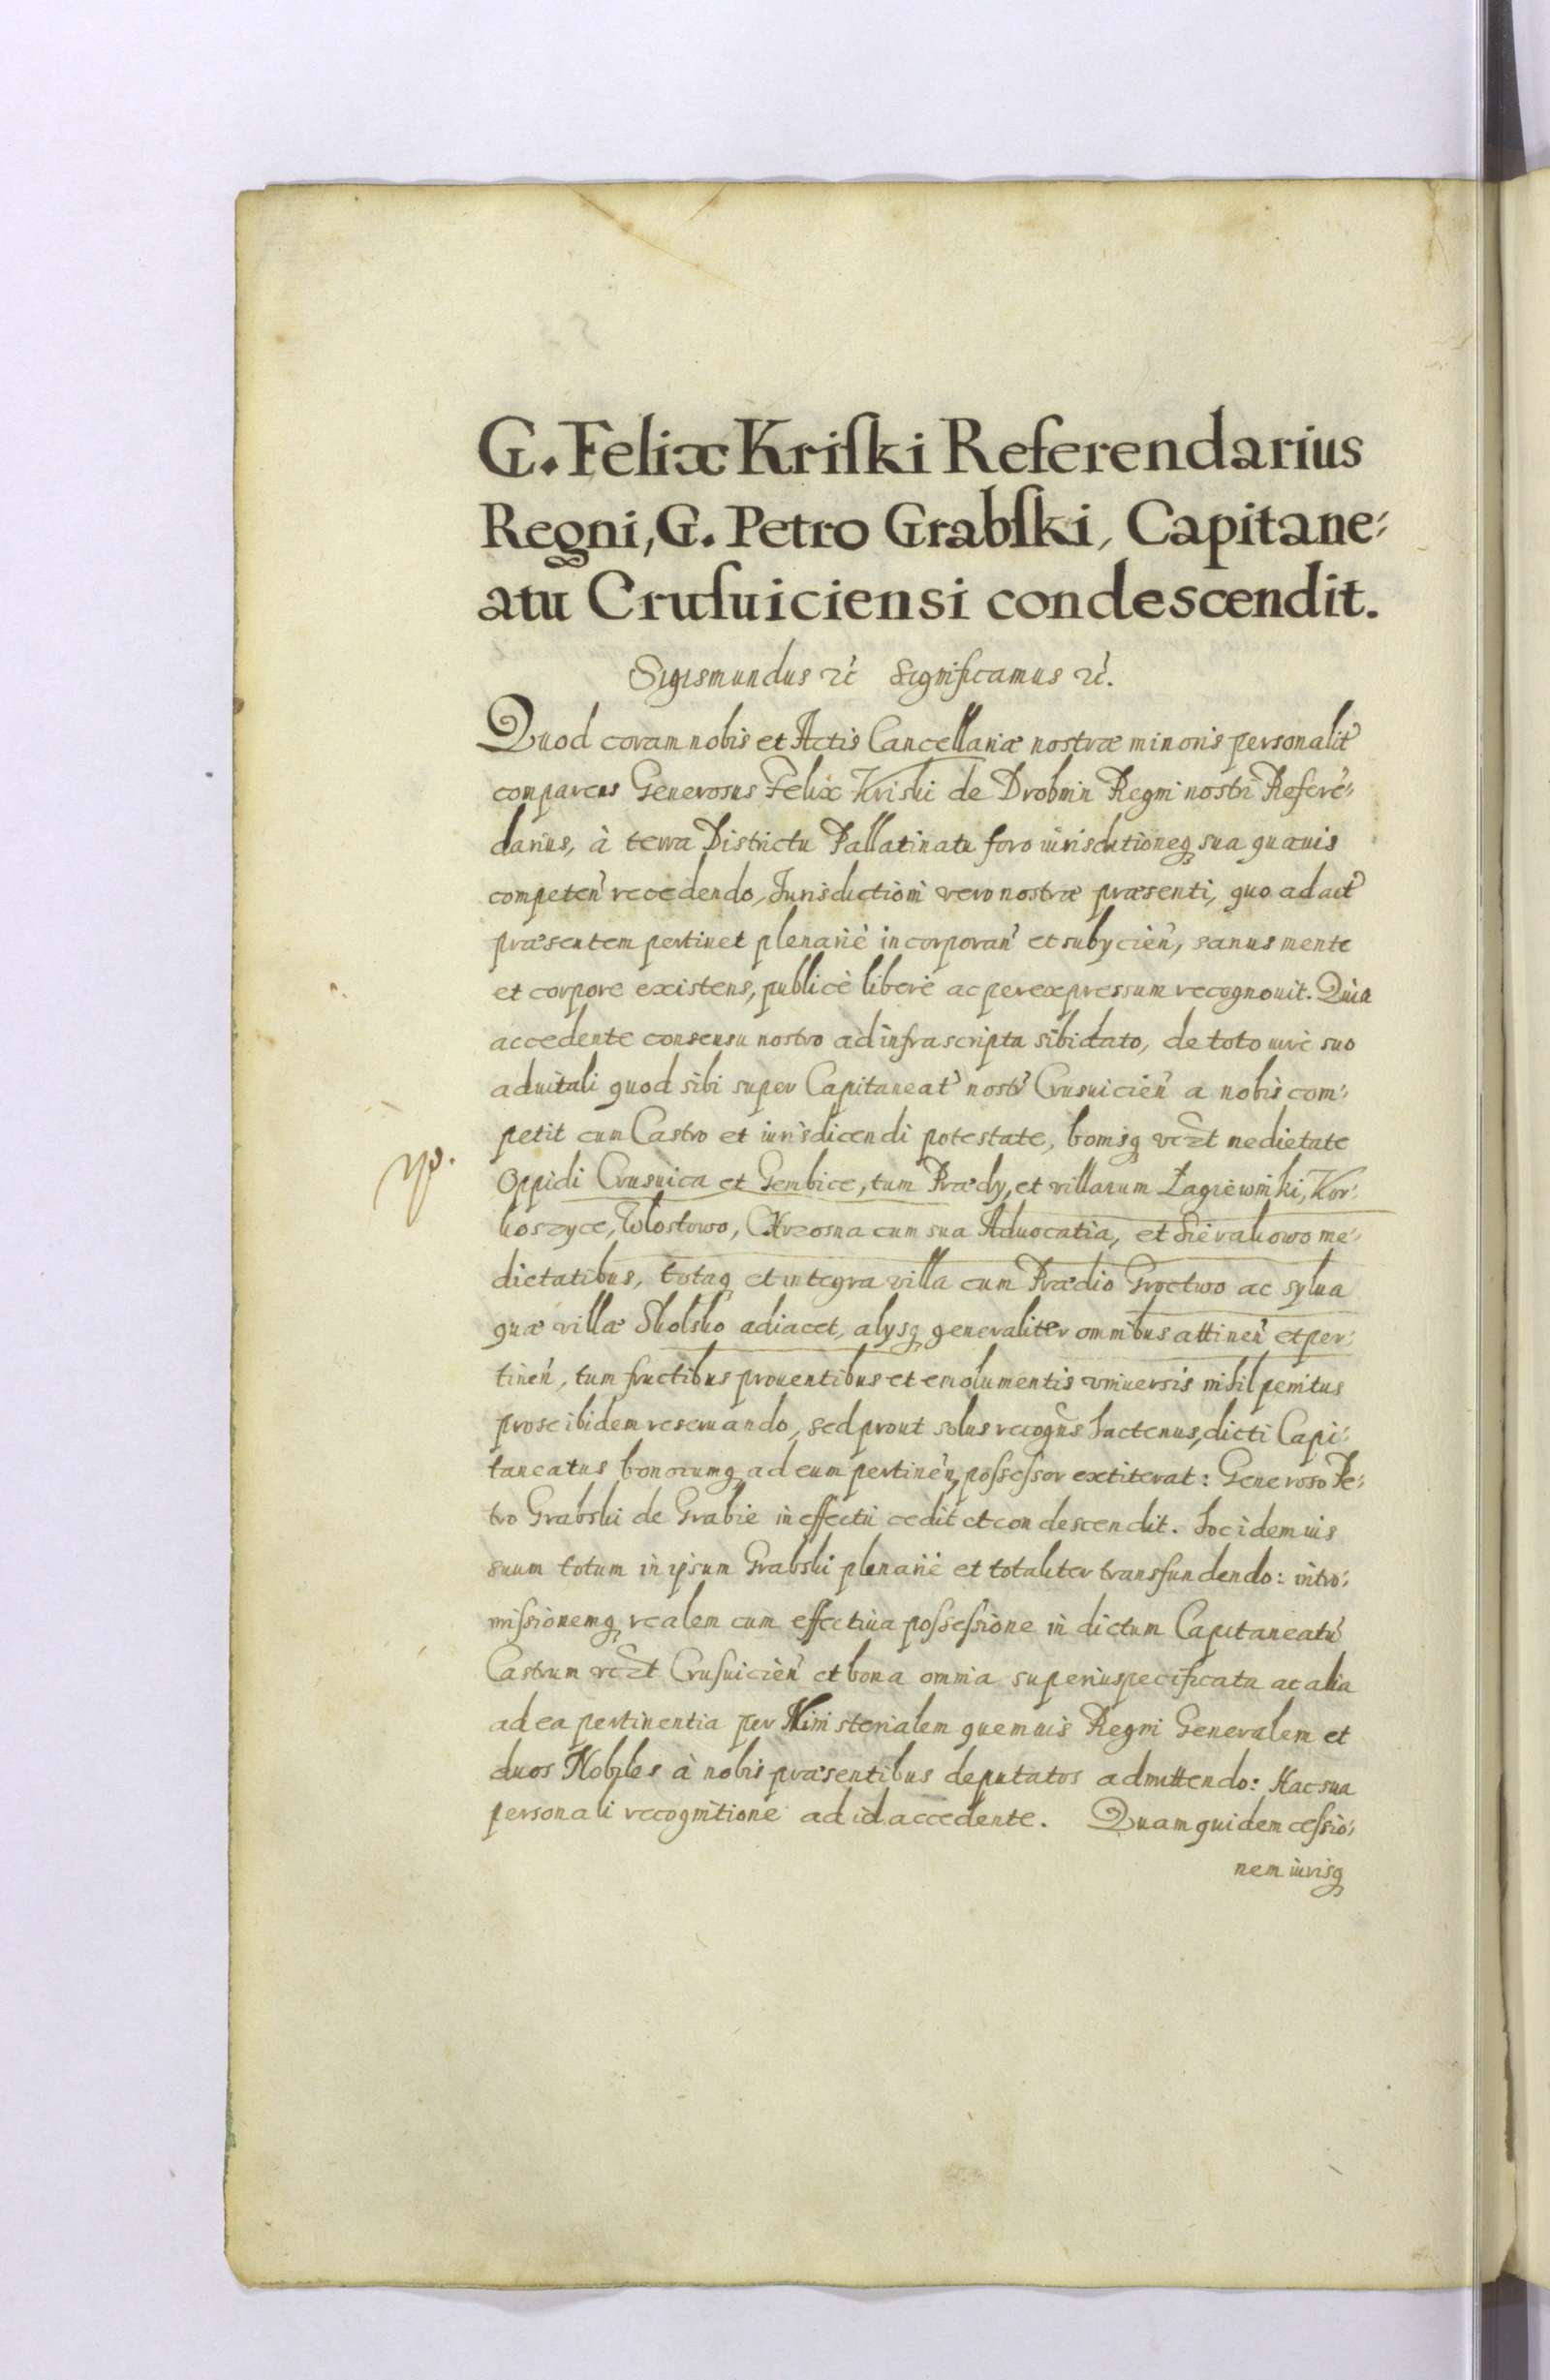 G. Felix Kriſki Referendarius
Regni, G. Petro Grabſki, Capitane:
atu Cruſuiciensi condescendit.
Sigismundus etc̀ Significamus etc̀.
Quod coram nobis et Actis Cancellariæ nostræ minoris personalit̉
comparens Generosus Felix Kriski de Drobnin Regni nostri Referē:
darius, à terra Districtu Pallatinatu foro iurisdictioneq̨ sua quæuis
competeñ recedendo, Jurisdictioni vero nostræ præsenti, quo ad act̉
præsentem pertinet plenariè incorporañ et subÿcieñ, sanus mente
et corpore existens, publicè liberè ac per expressum recognouit. Quia
accedente consensu nostro ad infrascripta sibi dato, de toto iure suo
aduitali quod sibi super Capitaneat̉ nostr̉ Crusuicieñ a nobis com:
petit cum Castro et iurisdicendi potestate, bonisq̨ vczt medietate
Oppidi Crusuica et Gembice, tum Prædÿ, et villarum Łagiewniki, Kor:
koszyce, Wlostowo, Chrosna cum sua Aduocatia, et Sierakowo me:
dietatibus, totaq̨ et integra villa cum Prædio Groctwo ac sylua
quæ villæ Skolsko adiacet, alÿsq̨ generaliter omnibus attineñ et per:
tineñ, tum fructibus prouentibus et emolumentis vniuersis nihil penitus
pro se ibidem reseruando, sed prout solus recogn̄s hactenus, dicti Capi:
taneatus bonorumq̨ ad eum pertineñ, poſseſsor extiterat: Generoso Pe:
tro Grabski de Grabie in effectu cedit et condescendit. Hoc idem ius
suum totum in ipsum Grabski plenariè et totaliter transfundendo: intro:
miſsionemq̨ realem cum effectiua poſseſsione in dictum Capitaneatū
Castrum vczt Cruſuicieñ et bona omnia superiuspecificata ac alia
ad ea pertinentia per Ministerialem quemuis Regni Generalem et
duos Nobiles à nobis præsentibus deputatos admittendo: Hac sua
personali recognitione ad id accedente. Quam quidem ceſsio:
nem iurisq̨